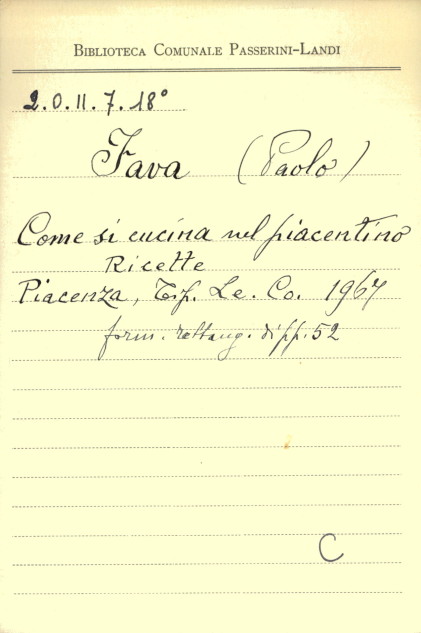 BIBLIOTECA COMUNALE PASSERINI-LANDI
2.O.II.7.18°
Fava (Paolo)
Come si cucina nel piacentino
Ricette
Piacenza, Tip. Le. Co. 1967
form. rettang. di pp. 52
C